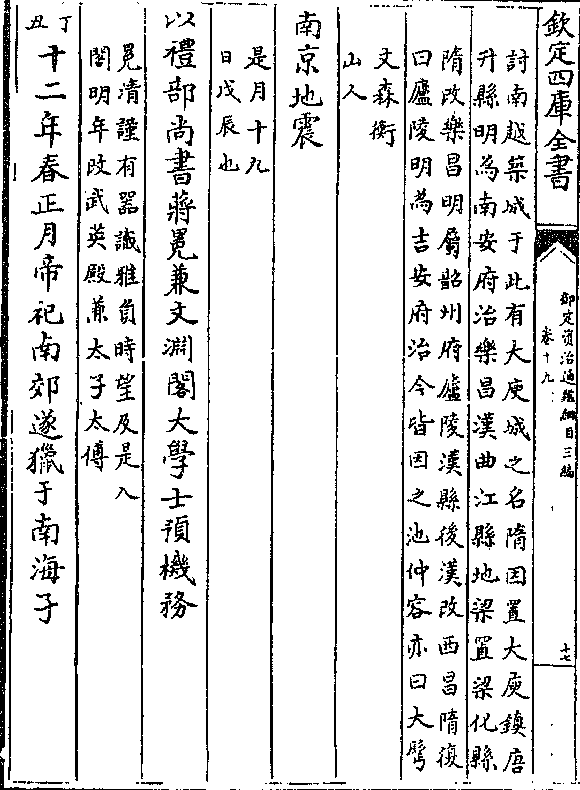 欽定四庫全書
御定資治通鑑綱目三編
卷十九
十七
討南越築城于此有大庾城之名隋因置大庾鎮唐
升縣明為南安府治樂昌漢曲江縣地梁置梁化縣
隋改樂昌明屬韶州府廬陵漢縣後漢改西昌隋復
曰廬陵明為吉安府治今皆因之池仲容亦曰大鬢
文森衡
山人
南京地震
是月十九
日戊辰也
以禮部尚書蔣冕兼文淵閣大學士預機務
冕清謹有器識雅負時望及是入
閣明年改武英殿兼太子太傅
丁
丑
十二年春正月帝祀南郊遂獵于南海子